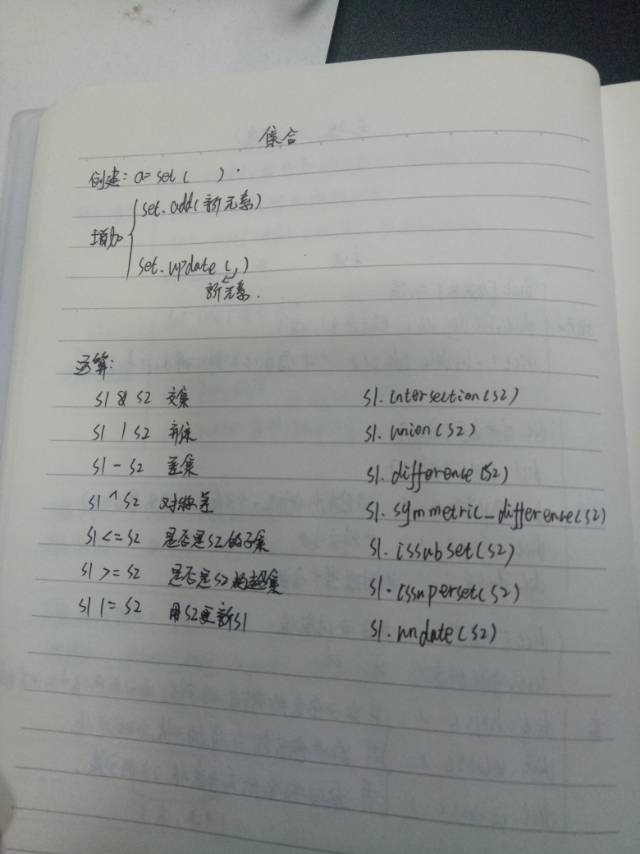 集合
创建: a= set( ).
增加
set.add(新元素)
set.update(,)
新元素.
运算:
s1 & s2 交集 s1.intersection(s2)
s1 | s2 并集 s1.union(s2)
s1 - s2 差集 s1.difference(s2)
s1 ^ s2 对称差 s1.symmetric_difference(s2)
s1 <= s2 是否是s2的子集 s1.issubset(s2)
s1 >= s2 是否是s2的超集 s1.issuperset(s2)
s1 |= s2 用s2更新s1 s1.undate(s2)